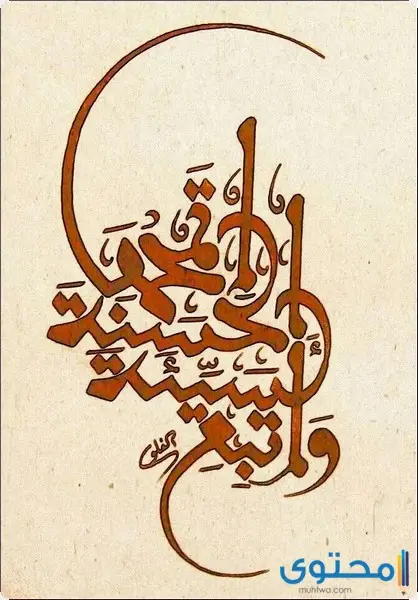 وأتبع
السيئة
الحسنة
تمحها
محتوى
muhtwa.com